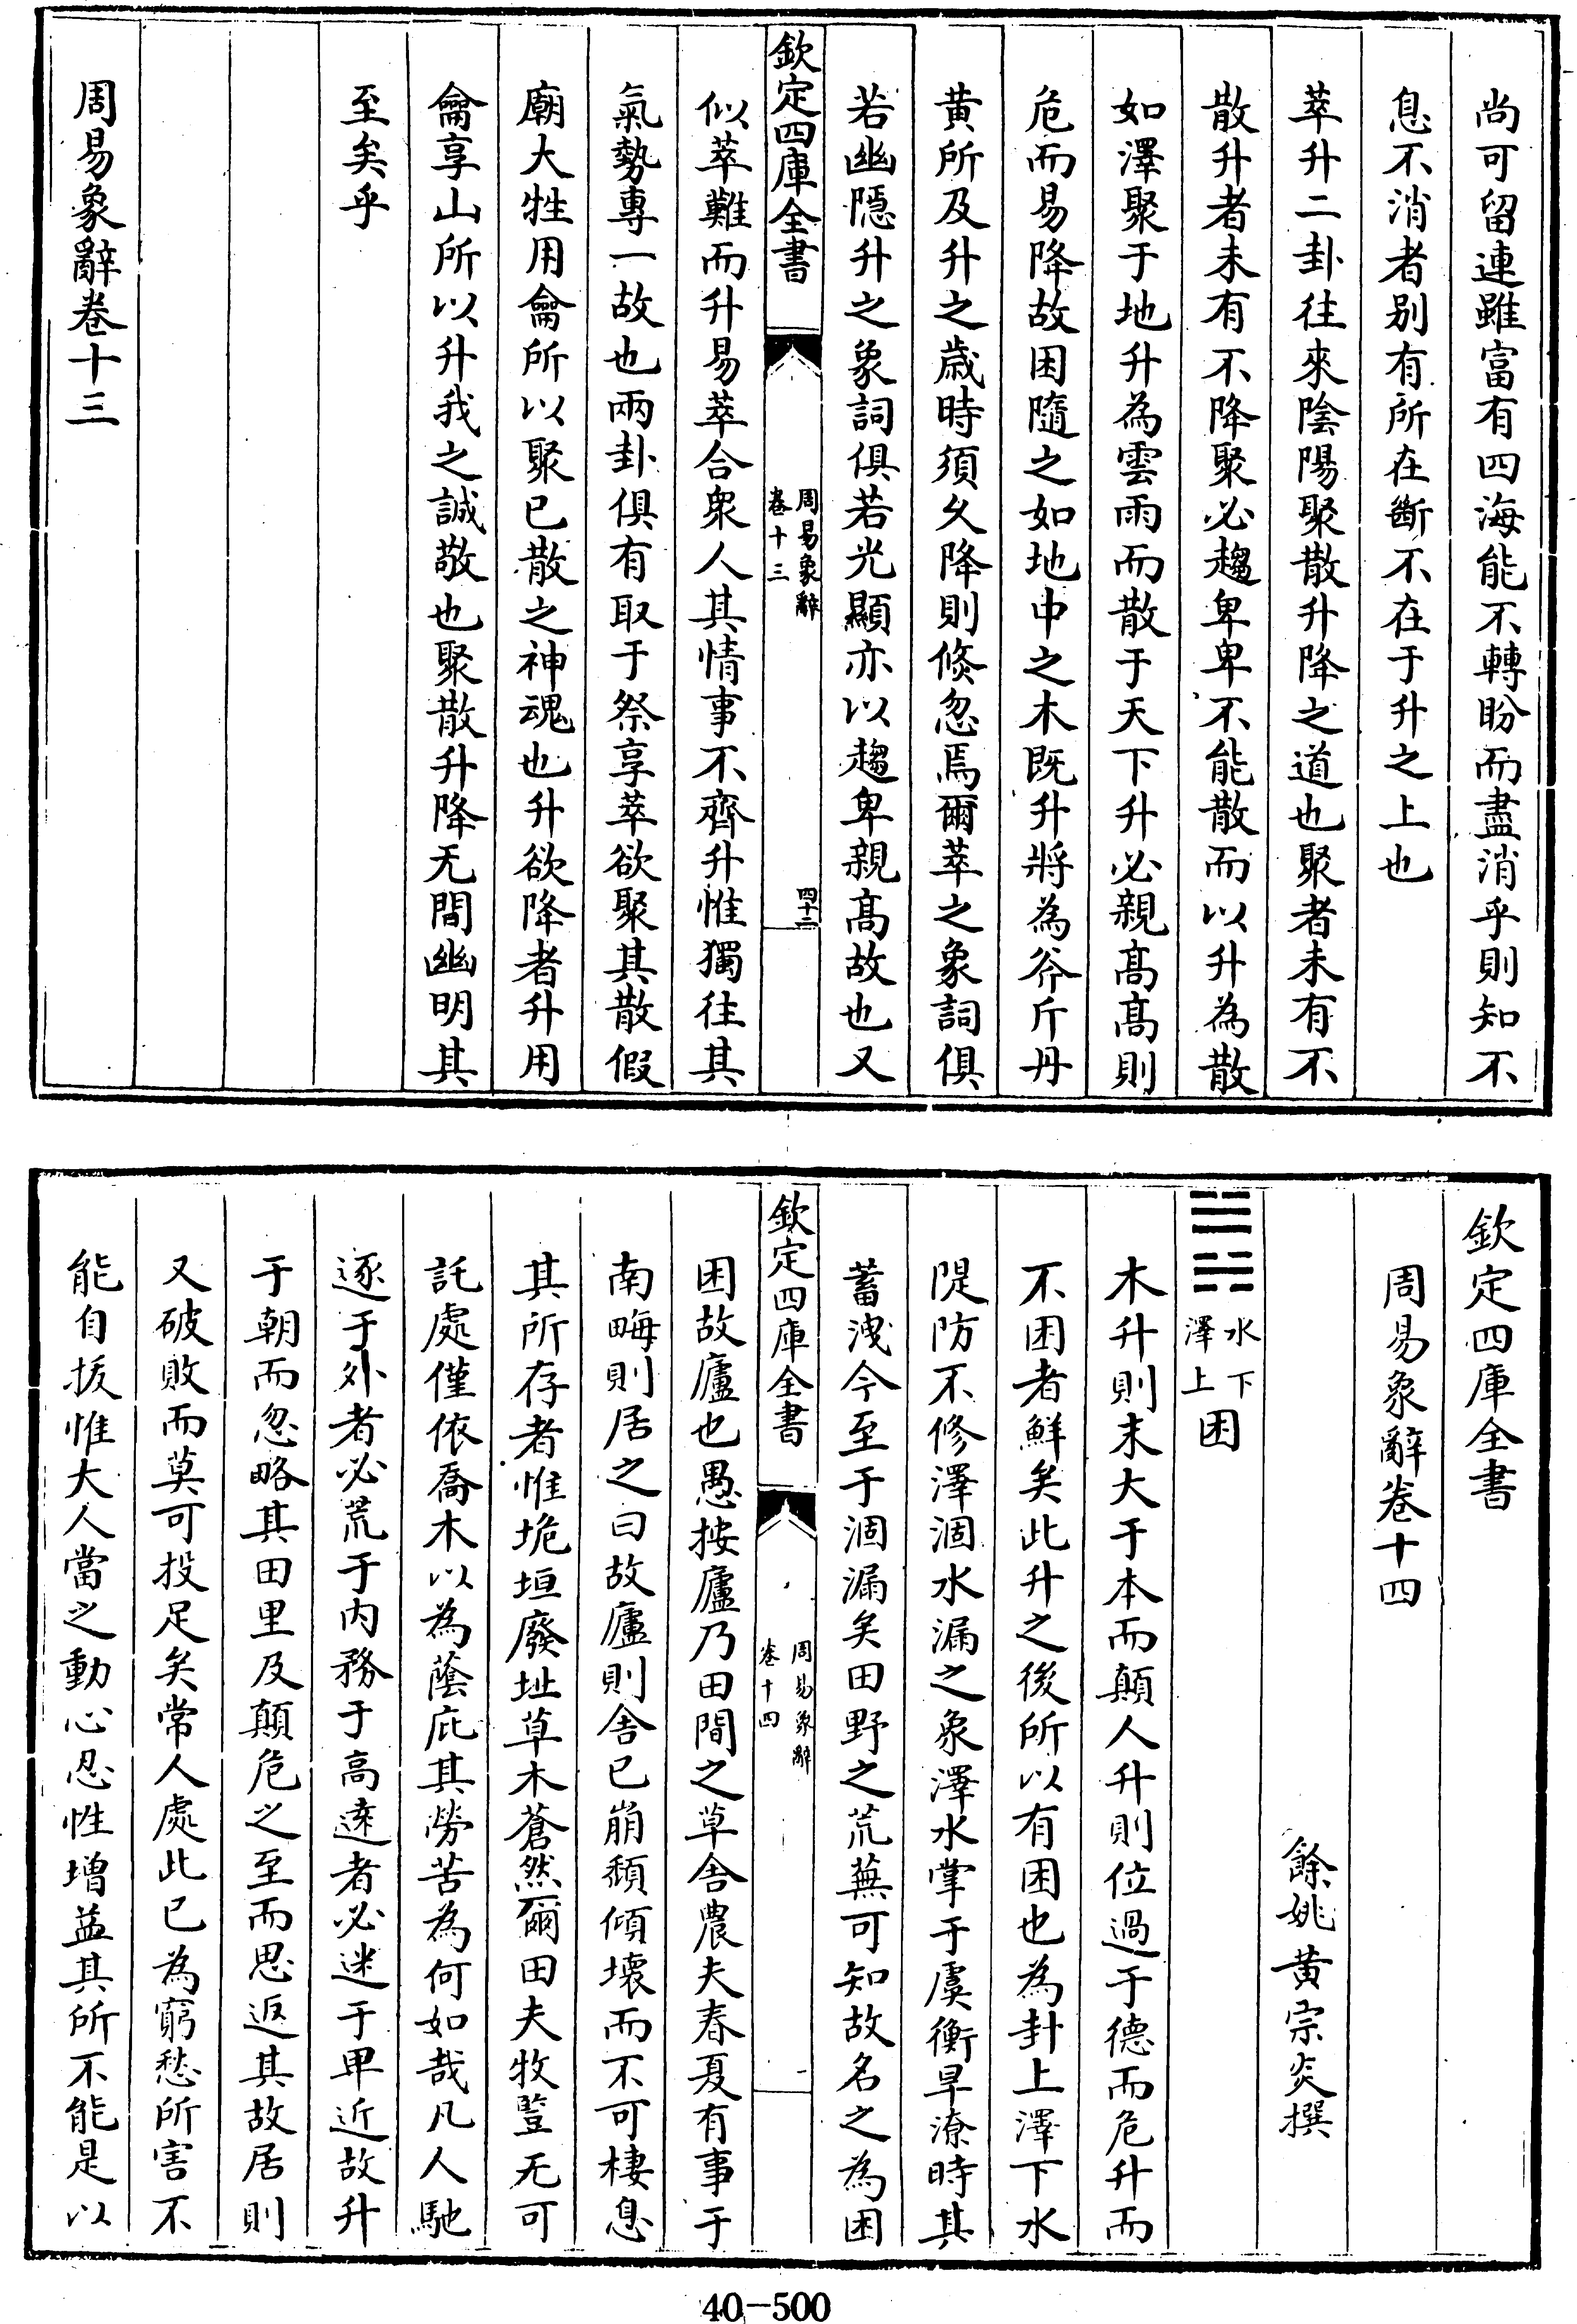 尚可留連雖富有四海能不轉盼而盡消乎則知不
息不消者别有所在斷不在于升之上也
萃升二卦往來陰陽聚散升降之道也聚者未有不
散升者未有不降聚必趨卑卑不能散而以升為散
如澤聚于地升為雲雨而散于天下升必親高高則
危而易降故困隨之如地中之木既升將為斧斤丹
黄所及升之歳時須久降則倐忽焉爾萃之象詞俱
若幽隱升之象詞俱若光顯亦以趨卑親高故也又
欽定四庫全書
周易象辭
卷十三
四十二
似萃難而升易萃合衆人其情事不齊升惟獨往其
氣勢專一故也兩卦俱有取于祭享萃欲聚其散假
廟大牲用禴所以聚已散之神魂也升欲降者升用
禴享山所以升我之誠敬也聚散升降无間幽明其
至矣乎
周易象辭卷十三
欽定四庫全書
周易象辭卷十四
餘姚黄宗炎撰
水下
澤上
困
木升則末大于本而顛人升則位過于德而危升而
不困者鮮矣此升之後所以有困也為卦上澤下水
隄防不修澤涸水漏之象澤水掌于虞衡旱潦時其
蓄洩今至于涸漏矣田野之荒蕪可知故名之為困
欽定四庫全書
周易象辭
卷十四
一
困故廬也愚按廬乃田間之草舎農夫春夏有事于
南畮則居之曰故廬則舎已崩頽傾壊而不可棲息
其所存者惟垝垣廢址草木蒼然爾田夫牧豎无可
託處僅依喬木以為蔭庇其勞苦為何如哉凡人馳
逐于外者必荒于内務于高遠者必迷于卑近故升
于朝而忽略其田里及顛危之至而思返其故居則
又破敗而莫可投足矣常人處此已為窮愁所害不
能自拔惟大人當之動心忍性增益其所不能是以
40-500